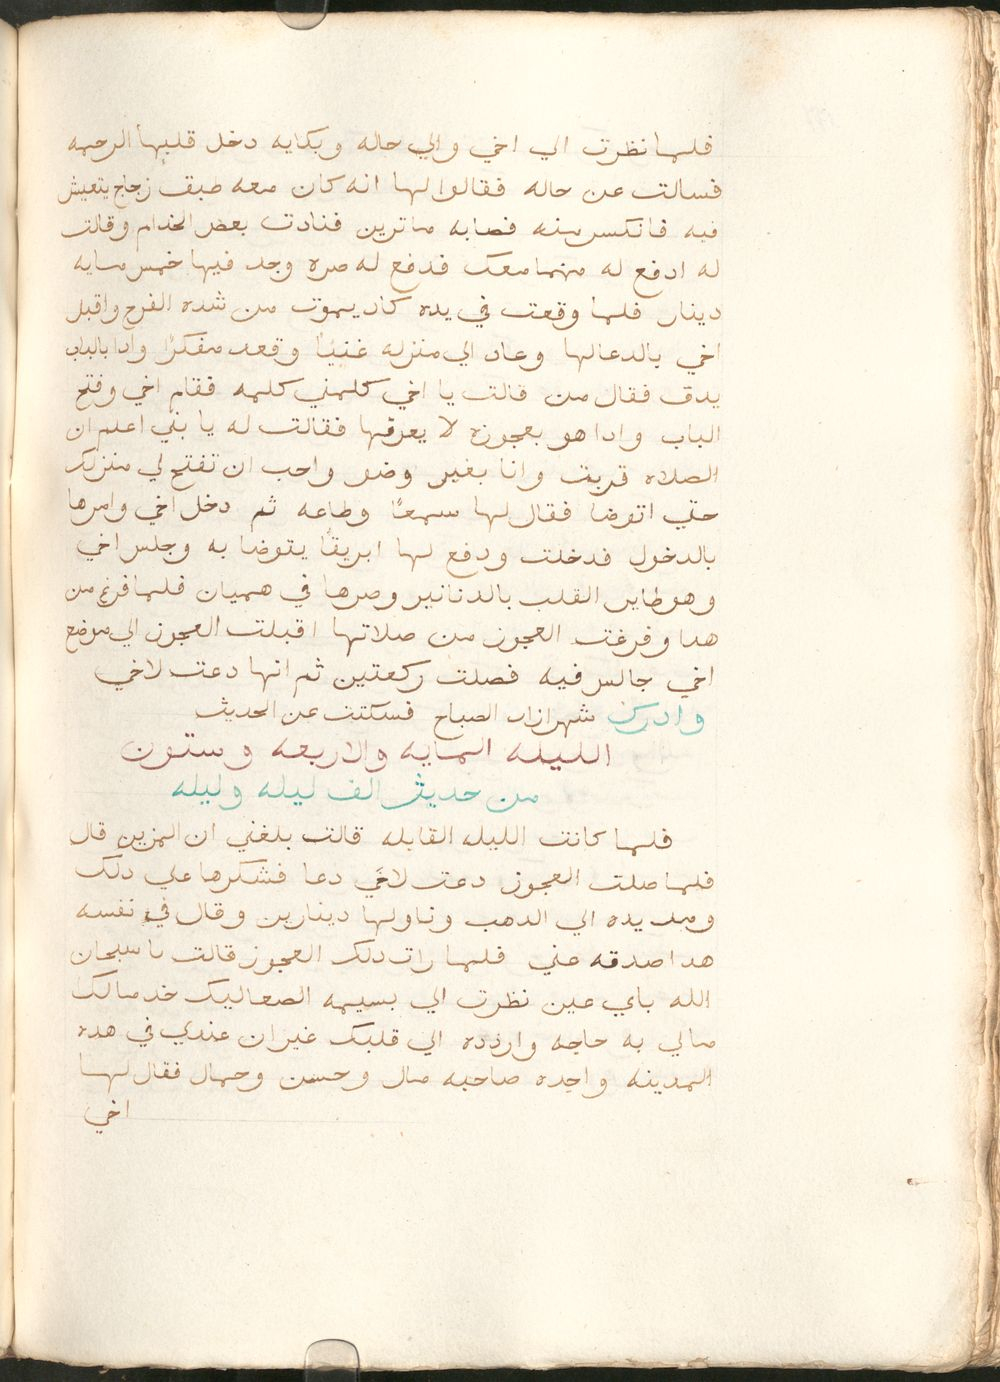 فلما نظرت الي اخي والي حاله وبكايه دخل قلبها الرحمه
فسالت عن حاله فقالوا لها انه كان معه طبق زجاج يتعيش
فيه فانكسر منه فصابه ما ترين فنادت بعض الخدام وقالت
له ادفع له مهما معك فدفع له صره وجد فيها خمس مايه
دينار فلما وقعت في يده كاد يموت من شده الفرح واقبل
اخي بالدعا لها وعاد الي منزله غنيًا وقعد مفكرًا وادا بالباب
يدق فقال من قالت يا اخي كلمني كلمه فقام اخي وفتح
الباب وادا هو بعجوزه لا يعرفها فقالت له يا بني اعلم ان
الصلاه قربت وانا بغير وضو واحب ان تفتح لي منزلك
حتي اتوضا فقال لها سمعًا وطاعه ثم دخل اخي وامرها
بالدخول فدخلت ودفع لها ابريقًا يتوضا به وجلس اخي
وهو طاير القلب بالدنانير وصرها في هميان فلما فرغ من
هدا وفرغت العجوز من صلاتها اقبلت العجوز الي موضع
اخي جالس فيه فصلت ركعتين ثم انها دعت لاخي
وادرك شهرازاد الصباح فسكتت عن الحديث
الليله المايه والاربعه وستون
من حديث الف ليله وليله
فلما كانت الليله القابله قالت بلغني ان المزين قال
فلما صلت العجوز دعت لاخي دعا فشكرها علي دلك
ومد يده الي الدهب وناولها دينارين وقال في نفسه
هدا صدقه عني فلما رات دلك العجوز قالت يا سبحان
الله باي عين نظرت الي بسيمه الصعاليك خد مالك
مالي به حاجه واردده الي قلبك غير ان عندي في هده
المدينه واحده صاحبه مال وحسن وجمال فقال لها
اخي